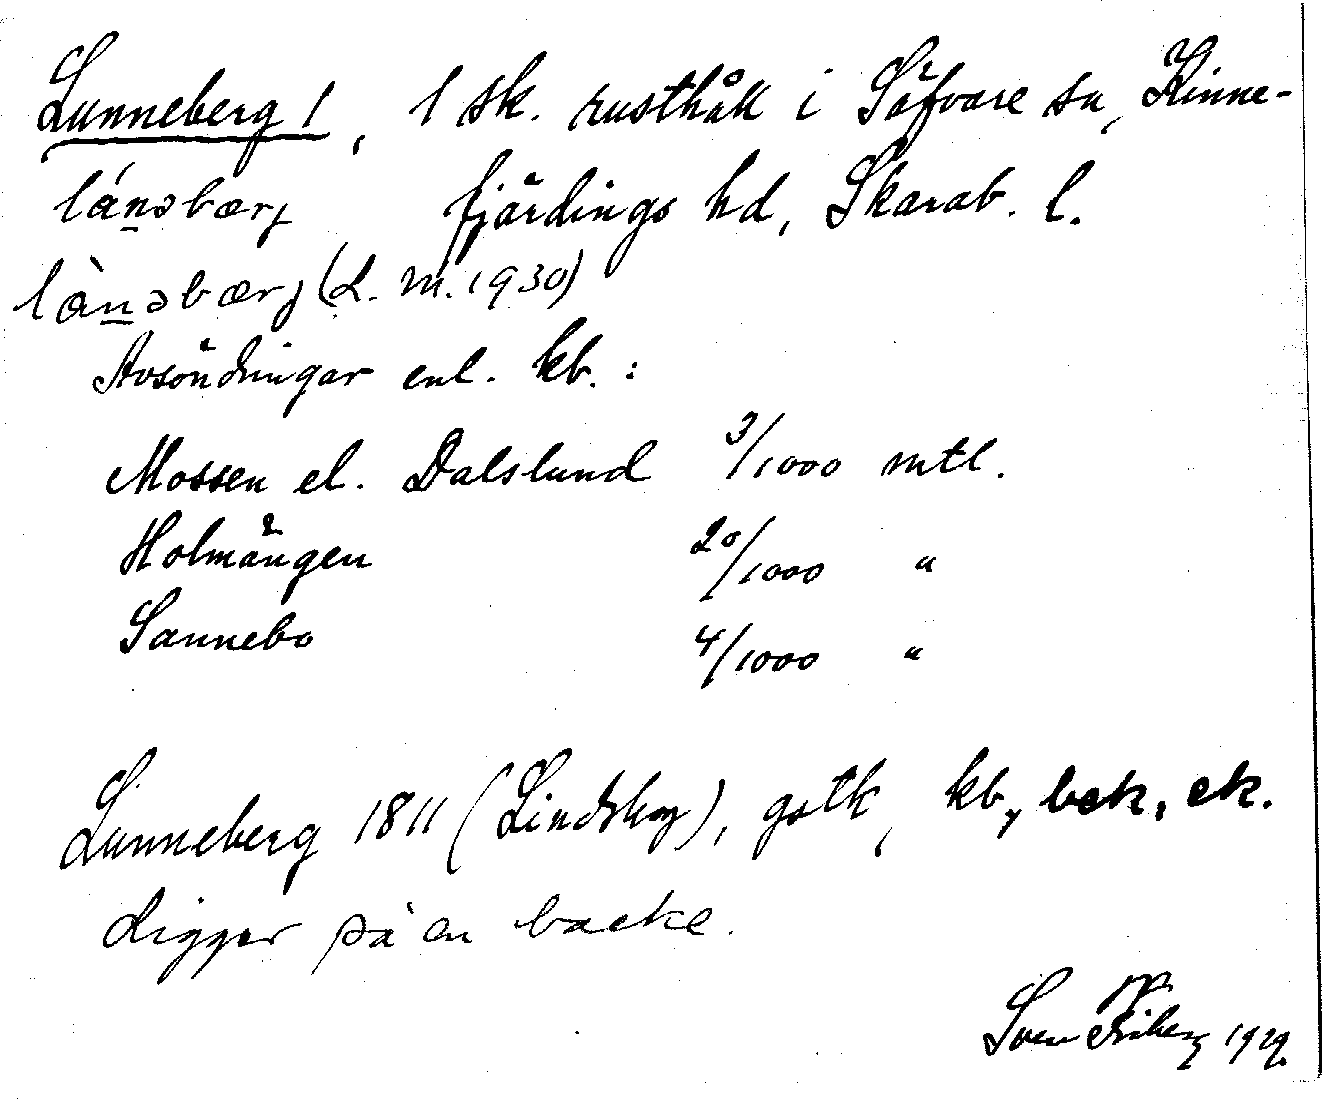 Lunneberg 1, 1 sk. rusthåll i Säfvare sn, Kinne-
lánəbærj fjärdings hd, Skarab. l.
lànəbærj (L. M. 1930)
Avsöndringar enl. kb.:
Mossen el. Dalslund 3/1000 mtl.
Holmängen 20/1000 "
Sannebo 4/1000 "
Lunneberg 1811 (Lindskog), gstk, kb, bek, ek.
Ligger på en backe.
Sven Friberg 1929.